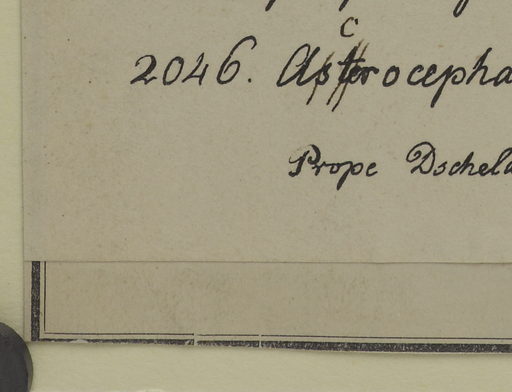 c
2046. Asterocepha
Prope Dschel